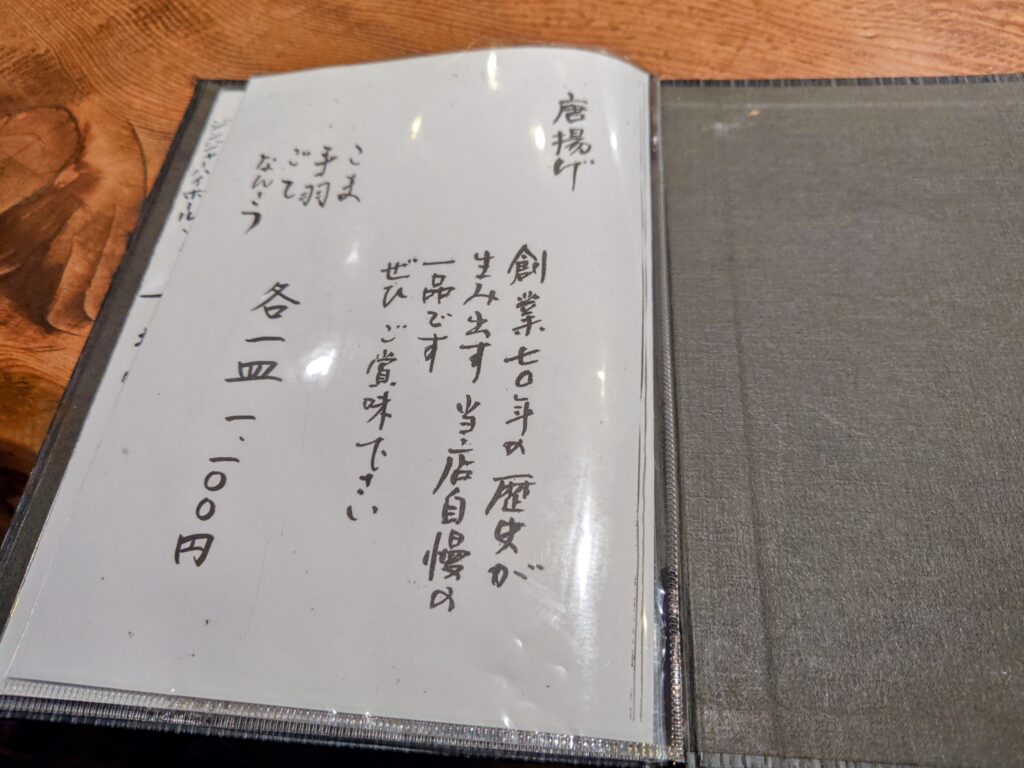 唐揚げ
創業七〇年の歴史が
生み出す当店自慢の
一品です
ぜひご賞味下さい
こま
手羽
ごて
なんこつ
各一皿一、一〇〇円
ジンジャーハイボール